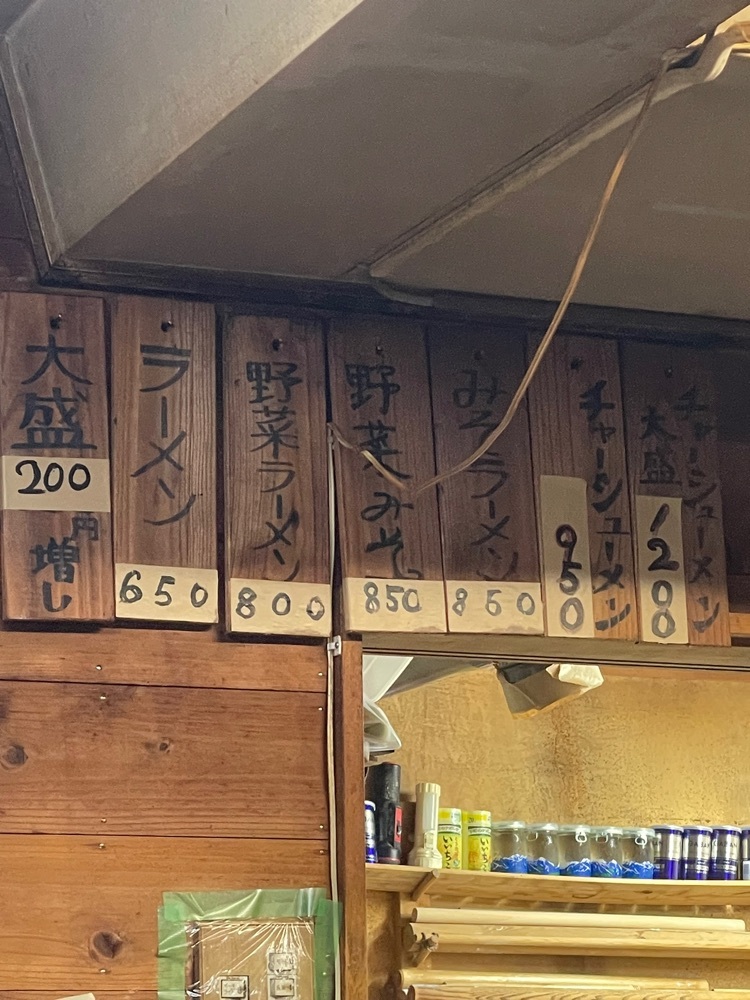 大盛
200
円
増し
ラーメン
650
野菜ラーメン
800
野菜みそ
850
みそラーメン
850
チャーシューメン
950
チャーシューメン
大盛
1200